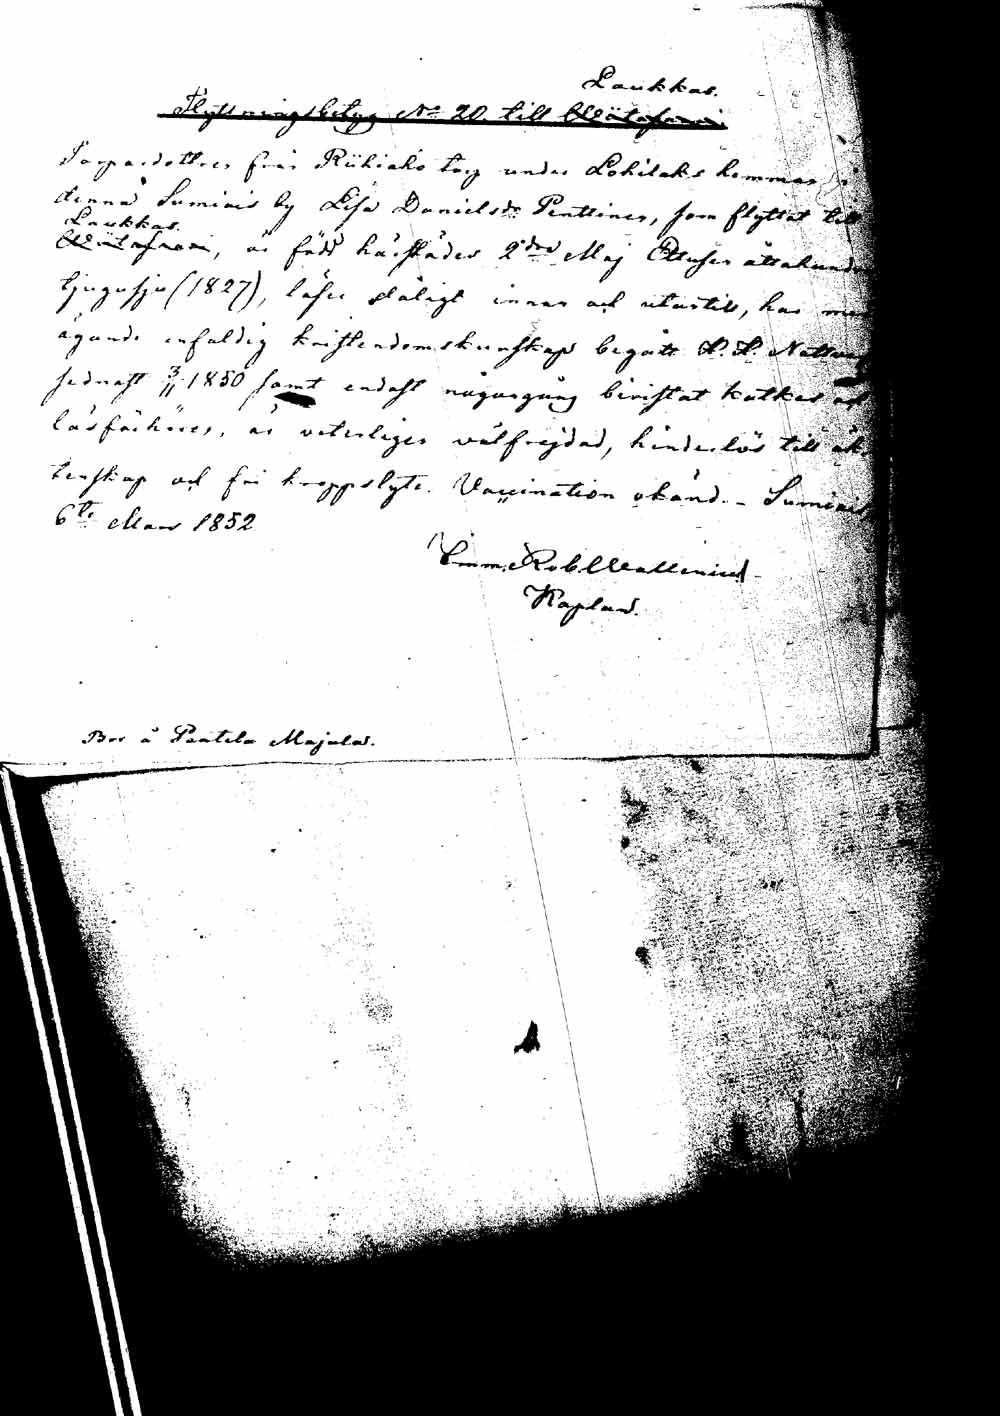 Laukkas.
Flyttningsbetyg No 20 till
Torpardottren från Riihiaho torp under Lohilaks hemman, i
denna Sumiais by Lisa Danielsdr Penttinen, som flyttat till
Laukkas.
är född härstädes 2dra Maj Ettusen åttahundra
tjugusju (1827), läser dåligt innan och utantill, har med
ägande enfaldig kristendomskunskap begått H. H. Nattvard
sednast 3/11 1850 samt endast någongång bivistat katkes och
läsförhören, är veterligen välfrejdad, hinderlös till äk-
tenskap och fri kroppslyte. Vaccination okänd. - Sumiais
6te Mars 1852
Emm. Rob. Wallenius
Kaplan.
Bor å Pentela Majalas.